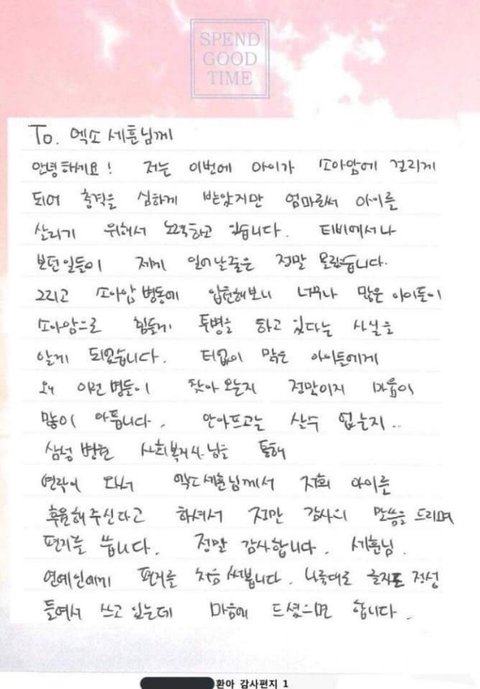 SPEND
GOOD
TIME
To. 엑소 세훈님께
안녕하세요! 저는 이번에 아이가 소아암에 걸리게
되어 충격을 심하게 받았지만 엄마로써 아이를
살리기 위해서 노력하고 있습니다. 티비에서나
보던일들이 제게 일어날줄은 정말 몰랐습니다.
그리고 소아암 병동에 입원해보니 너무나 많은 아이들이
소아암으로 힘들게 투병을 하고 있다는 사실을
알게 되었습니다. 티없이 맑은 아이들에게
왜 이런 병들이 찾아 오는지 정말이지 마음이
많이 아픕니다. 안아프고는 살수 없는지..
삼성 병원 사회복지사님을 통해
연락이 와서 엑소 세훈님께서 저희 아이를
후원해 주신다고 하셔서 정말 감사의 말씀을 드리며
편지를 씁니다. 정말 감사합니다. 세훈님.
연예인에게 편지를 처음 써봅니다. 나름대로 글자도 정성
들여서 쓰고 있는데 마음에 드셨으면 합니다.
환아 감사편지 1